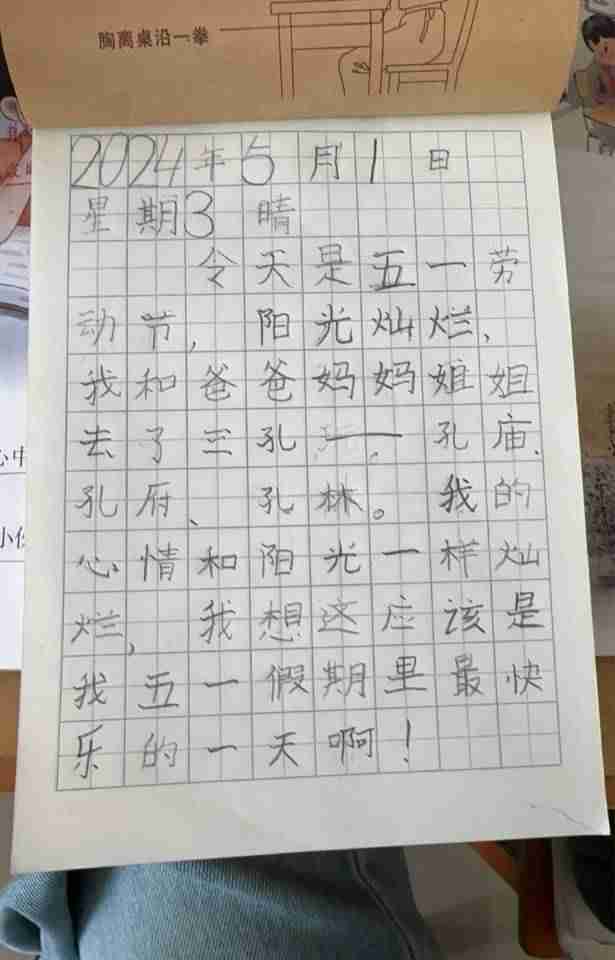 胸离桌沿一拳
2024年5月1日
星期3 晴
令天是五一劳
动节,阳光灿烂、
我和爸爸妈妈姐姐
去了三孔——孔庙、
孔府、孔林。我的
心情和阳光一样灿
烂,我想这应该是
我五一假期里最快
乐的一天啊!
心中